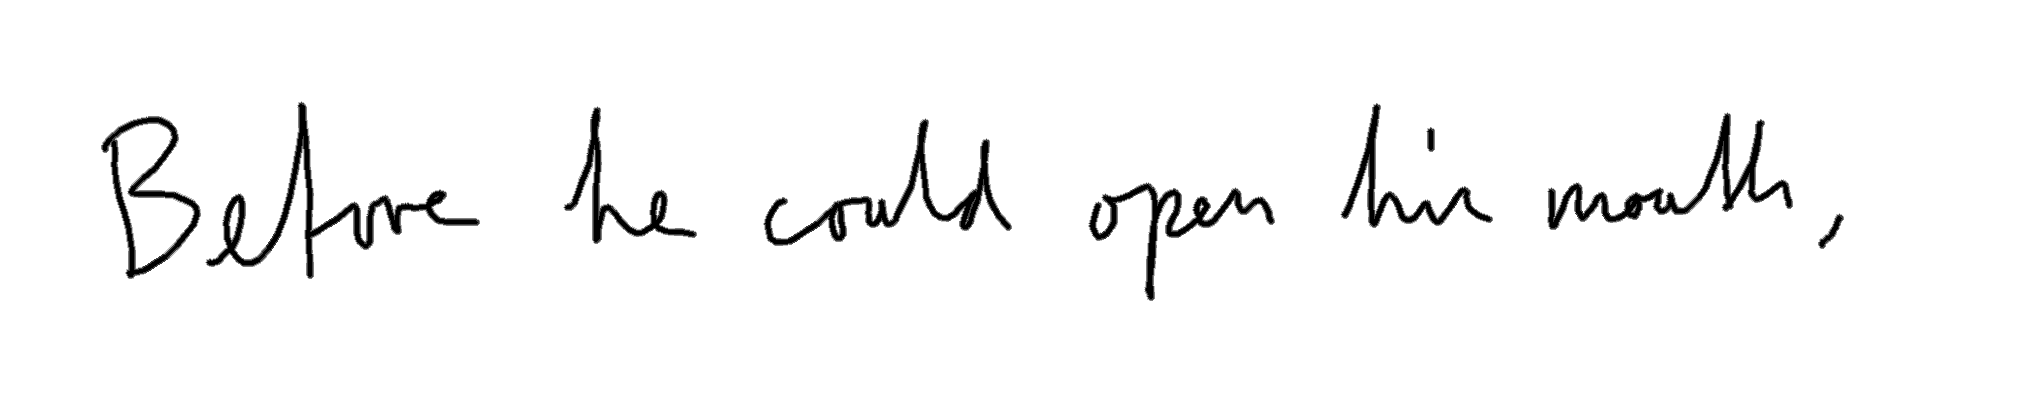 Before he could open his mouth,